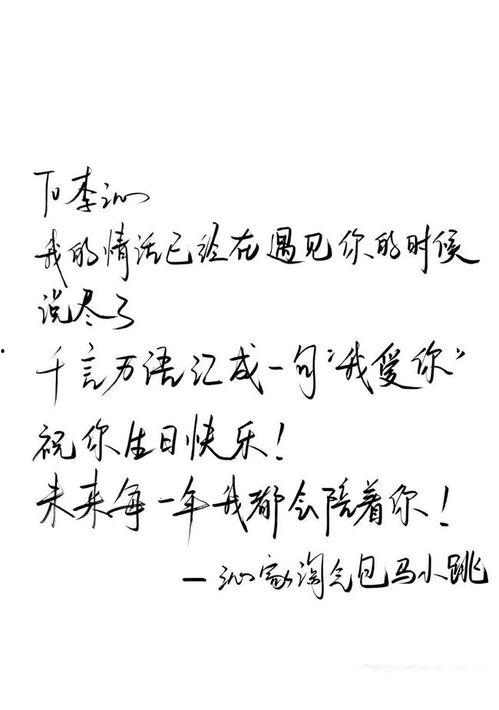 To 李沁
我的情话已经在遇见你的时候
说尽了
千言万语汇成一句“我爱你”
祝你生日快乐!
未来每一年我都会陪着你!
—沁家淘气包马小跳